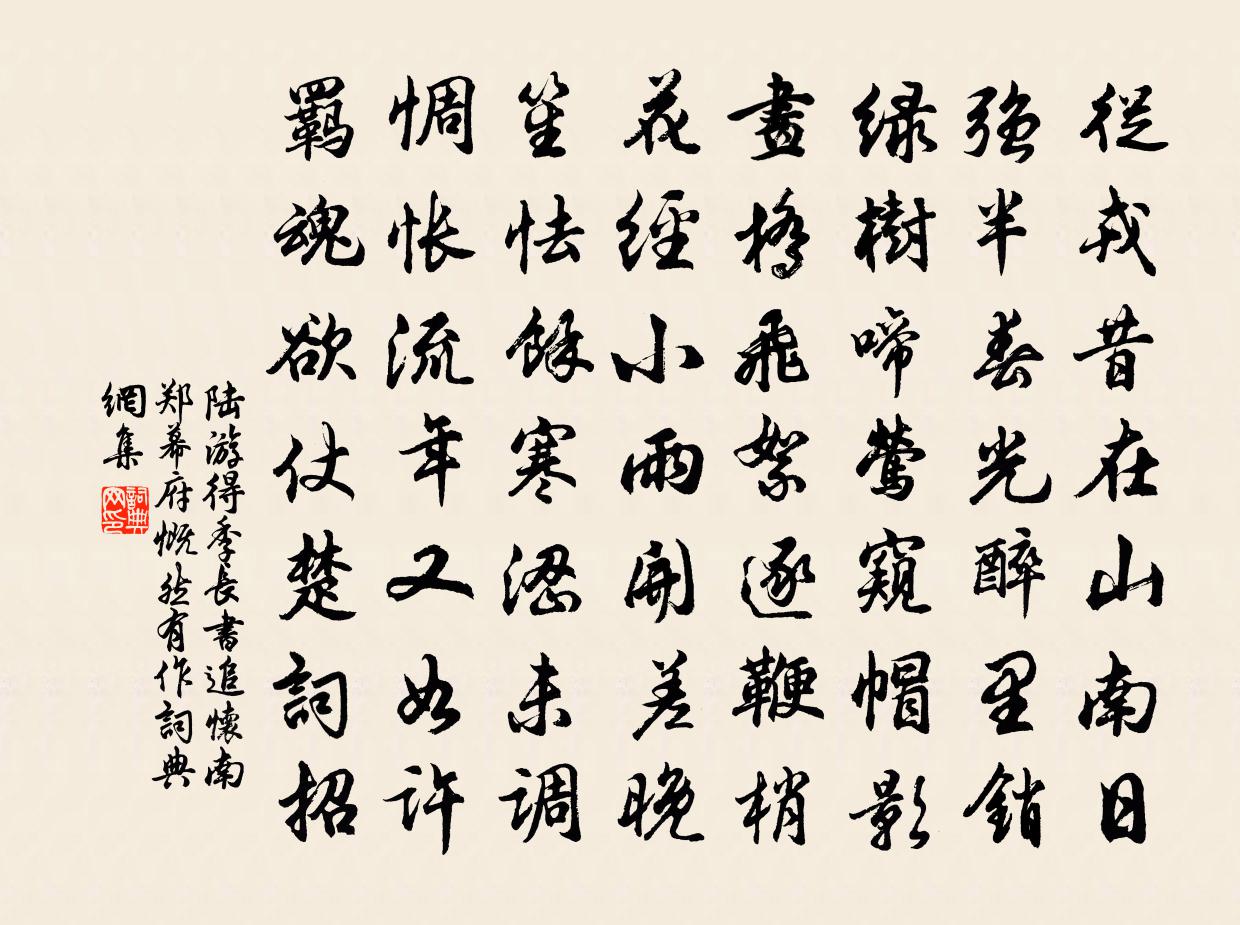 從戎昔在山南日
强半春光醉里銷
緑樹啼鶯窺帽影
畫橋飛絮逐鞭梢
花經小雨開差晚
笙怯餘寒澀未調
惆怅流年又如许
羈魂欲仗楚詞招
陆游得季长書追懷南
郑幕府慨然有作詞典
網集
詞典网印